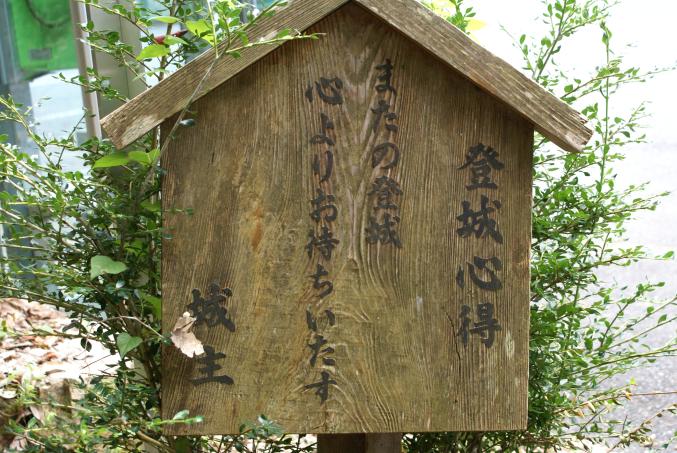 登城心得
またの登城
心よりお待ちいたす
城主